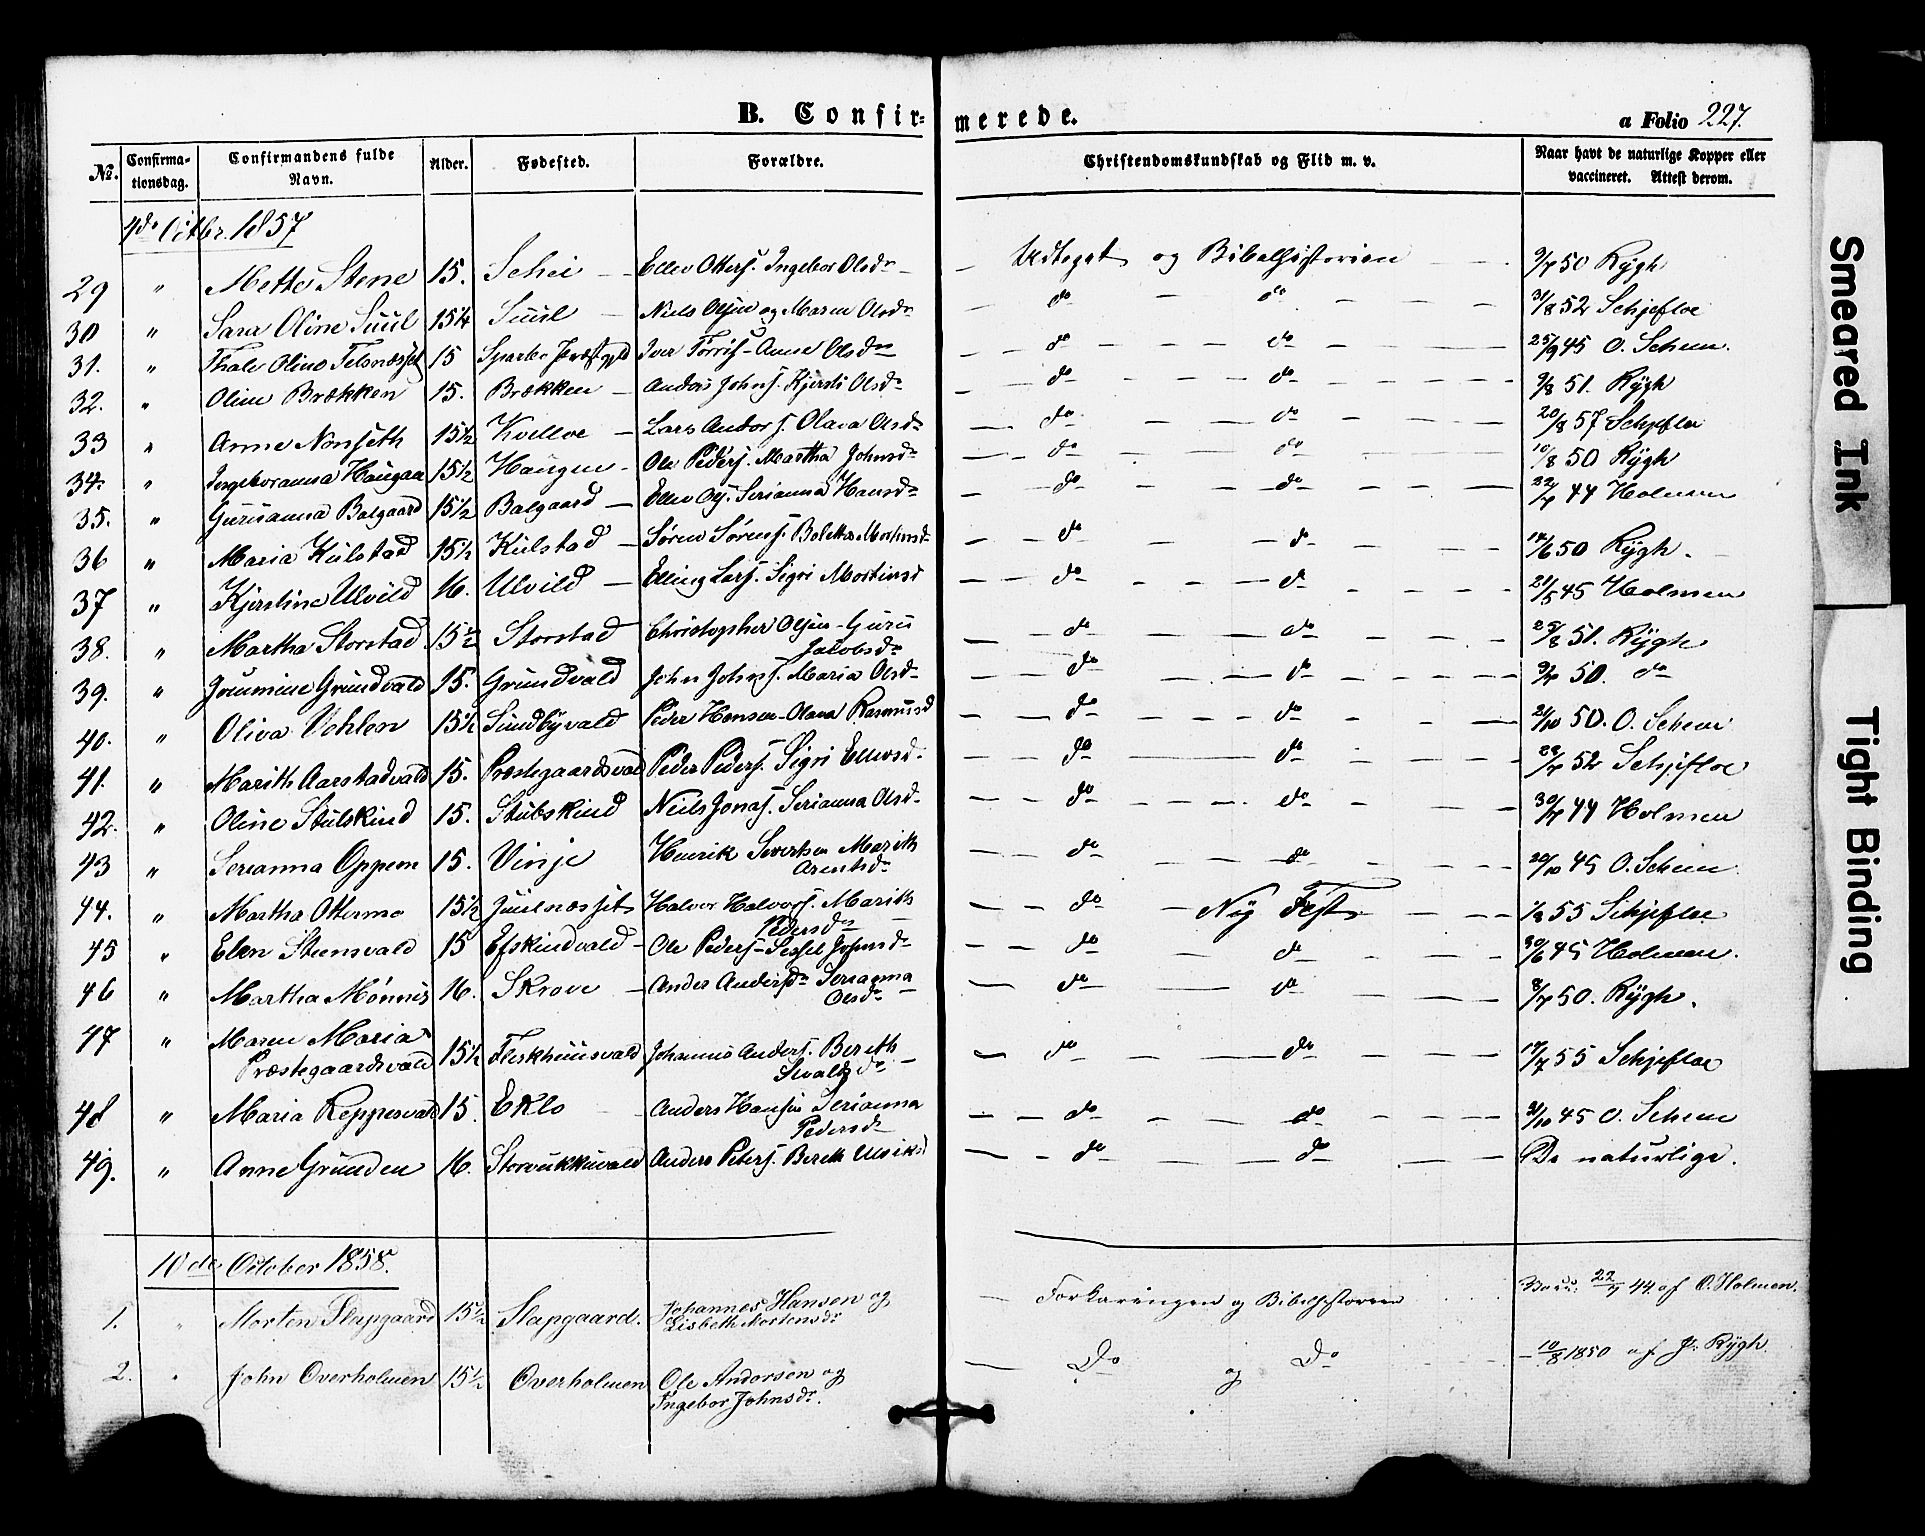 B. Confir= merede. a Folio 227.
No. Confirma-tionsdag. Confirmandens fulde Navn. Alder. Fødested. Forældre. Christendomskundskab og Flid m. v. Naar havt de naturlige Kopper eller vaccineret. Attest derom.
4de Octbr. 1857
29 " Mette Stene 15. Schei Ellev Otters. Ingebor Olsdr Udtoget og Bibelhistorien 9/7 50 Rygh
30 " Sara Oline Suul 15¼ Suul Niels Olsen og Maren Olsdr do do 31/8 52 Schjefloe
31. " Thale Oline 15 Sparbo Iver Anne Olsdr do do 25/9 45 O. Schem.
32. " Oline Brækken 15. Brækken Anders Johns. Kjersti Olsdr do do 9/8 51. Rygh
33 " Anne Nonseth 15½ Kvelloe Lars Anders. Olava Olsdr do do 20/8 57 Schjefloe
34. " Ingeboranna Haugan 15½ Haugen Ole Peders. Martha Johnsdr do do 10/8 50 Rygh
35. " Gurianna Balgaard 15½ Balgaard Ellev Ols. Serianna Hansdr do do 22/7 44 Holmen
36 " Maria Kulstad 15½ Kulstad Søren Sørens. Boletta do do 14/6 50 Rygh.
37 " Kjerstine Ulvild 16. Ulvild Elling Lars. Sigri Mortensd do do 21/5 45 Holmen
38. " Martha Storstad 15½ Storstad Christopher Olsen Guru Jacobsdr do do 25/8 51. Rygh
39. " Grundvald 15. Grundvald John Johns. Maria Olsdr do do 9/7 50. do
40. " Oliva Vehlen 15½ Sundbyvald Peder Hansen Olava Rasmusd do do 21/10 50. O. Schem
41. " Marith Aarstadvald 15. Præstegaardsvald Peder Peders. Sigri Ellevsd. do do 22/7 52 Schjefloe
42. " Oline Stulskind 15. Stubskind Neils Jonas. Serianna Olsd. do do 30/7 44 Holmen
43 " Serianna Oppem 15. Vinje Henrik Sivertsen Marith Arentsdr do do 20/10 45 O. Schem
44. " Martha Ottermo 15½ Juulnæsset Halvor Halvors. Marith Pedersdr do Nÿ Test. 1/8 55 Schjefloe
45 " Elen Steensvald 15 Efskindvald Ole Peders. Sessel Johnsdr do do 30/6 45 Holmen.
46 " Martha Mønnes 16. Skrove Serianna Olsdr do do 8/7 50. Rygh.
47 " Maren Maria Præstegaardsvald 15½ Fleskhuusvald Johannes Anders. Bereth do do 17/7 55 Schjefloe
48 " Maria Reppesvald 15. Eklo Anders Hansen Serianna Pedersdr do do 21/10 45 O. Schem
49. " Anne Grunden 16. Storvukkuvald Anders Peters. Bereth Ulriksd do do De naturlige.
10de October 1858.
1. " Morten Slapgaard 15½ Slapgaard. Johannes Hansen og Lisbeth Mortensdr Forklaringen og Bibelhistorien 22/7 44 af O. Holmen.
2. " John Overholmen 15½ Overholmen Ole Andersen og Ingebor Johnsdr. Do og Do 10/8 1850 af P. Rygh
Smeared Ink
Tight Binding